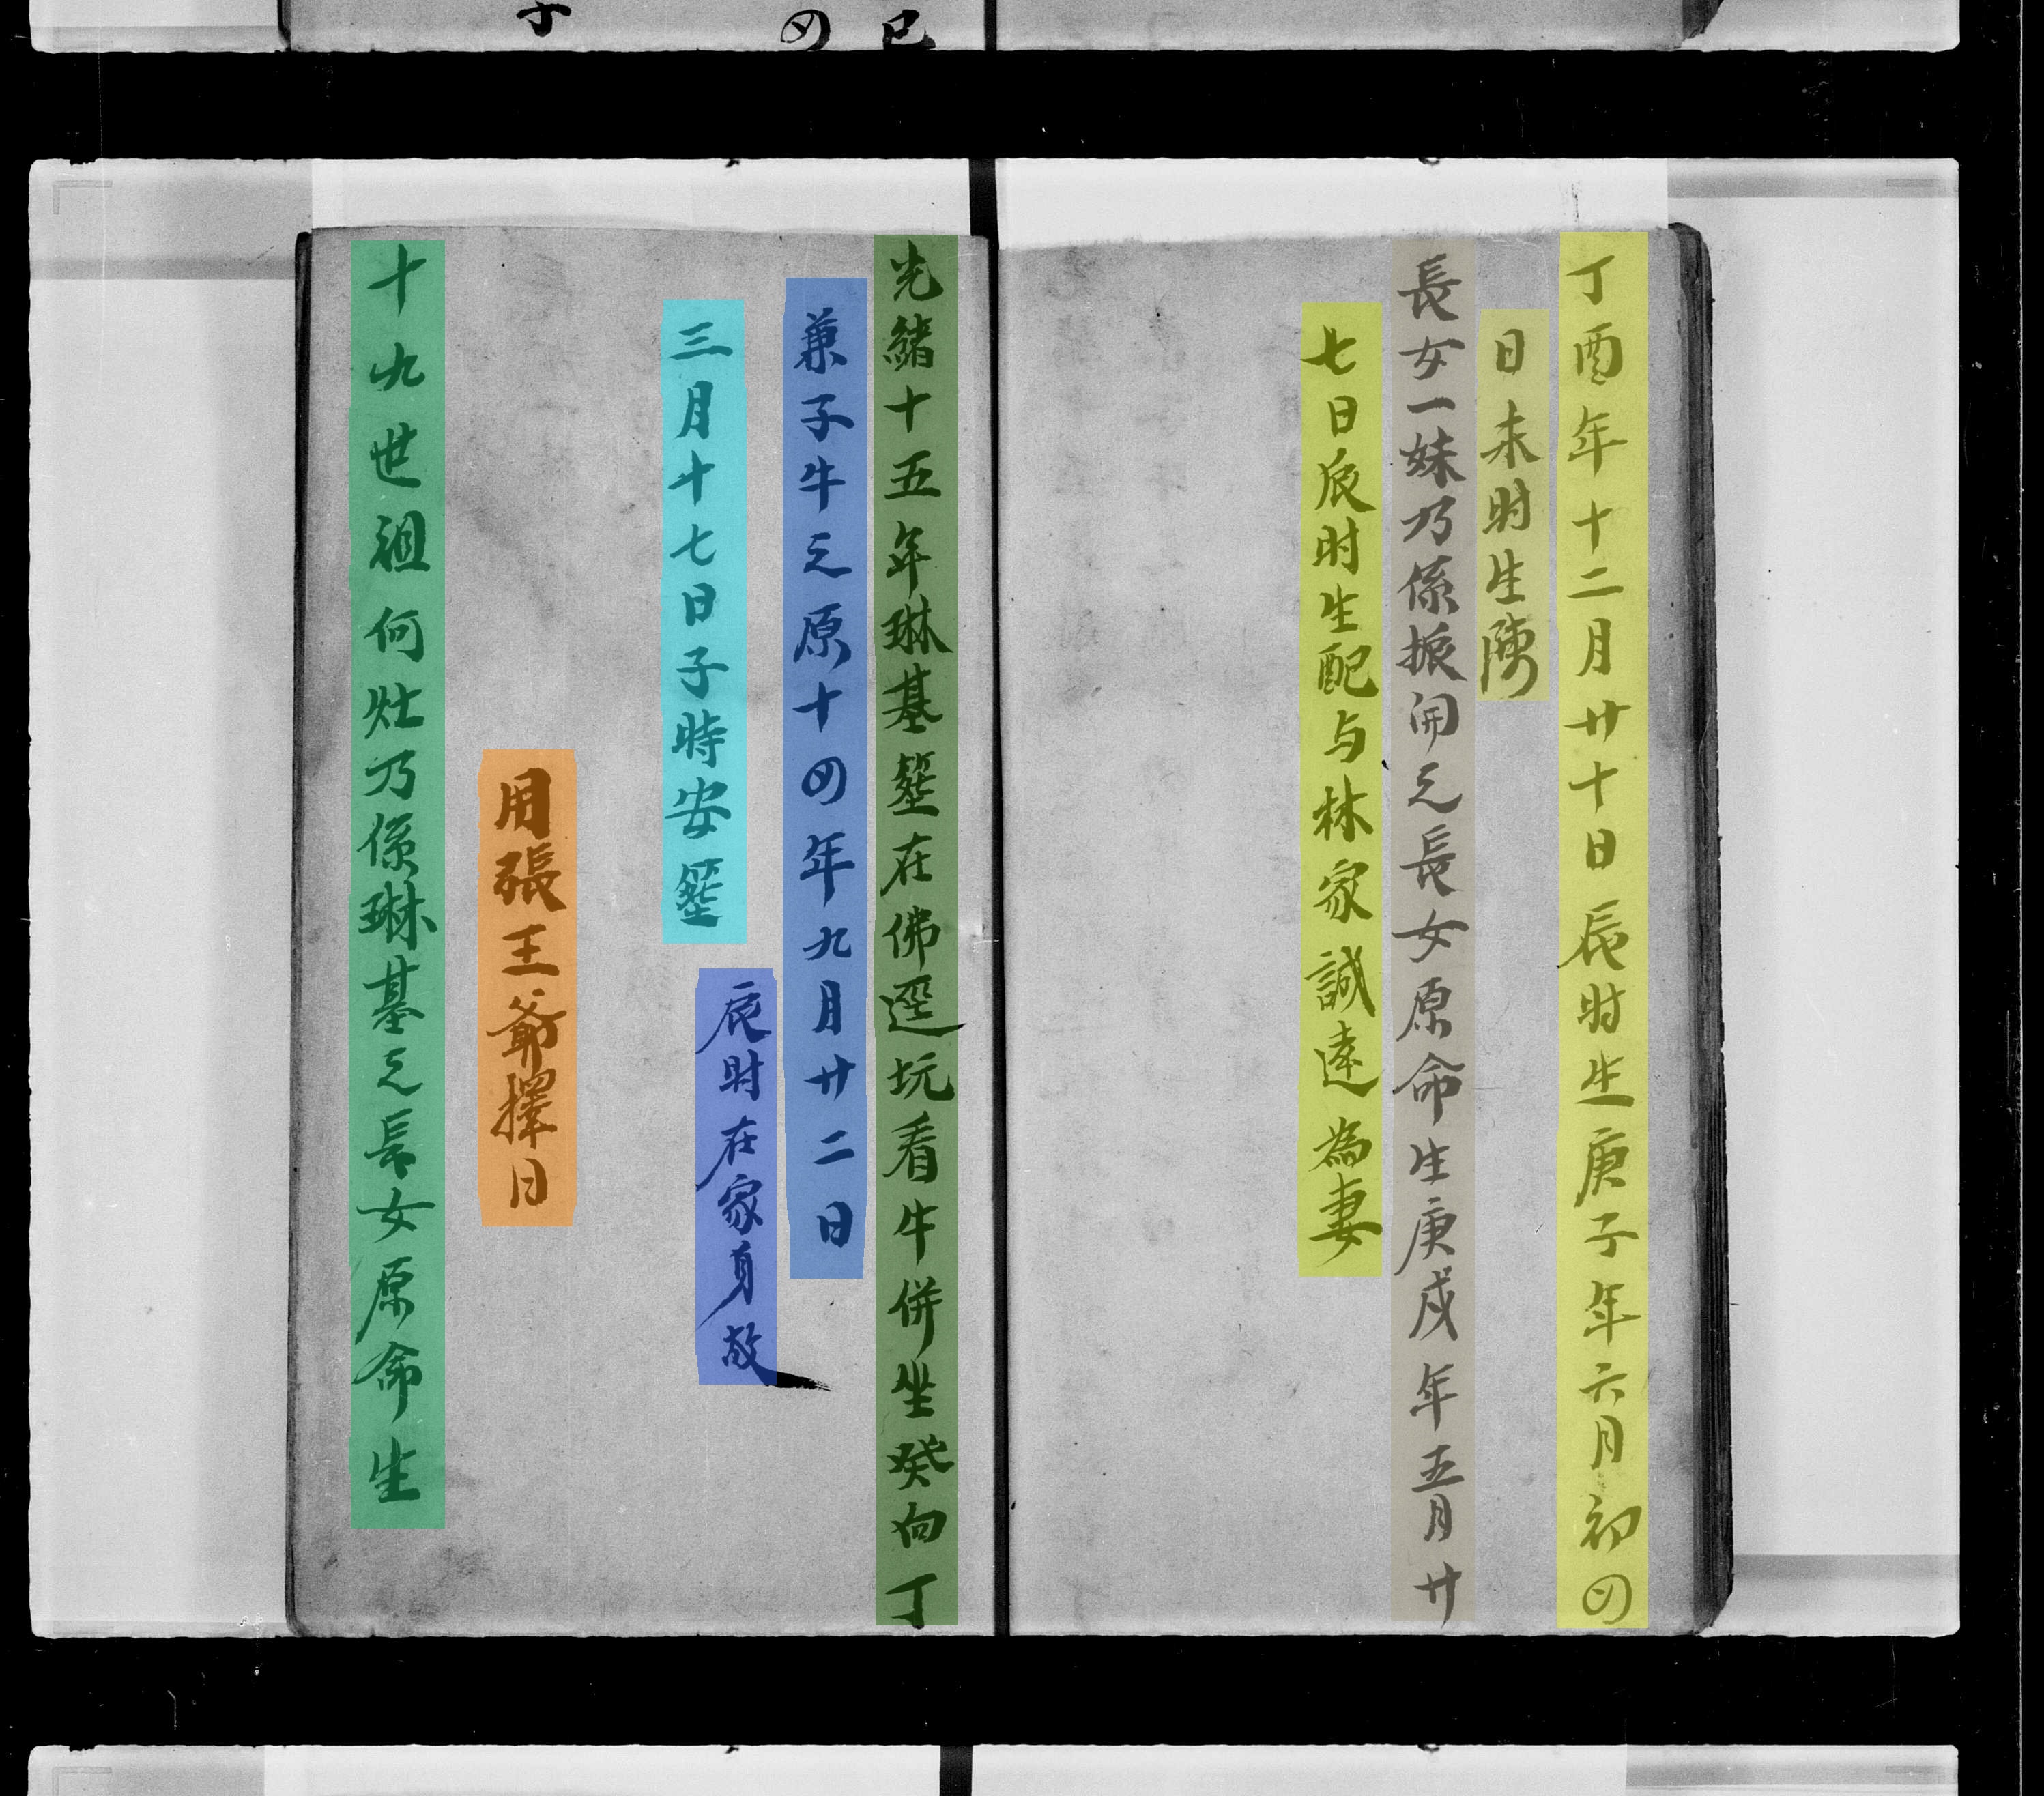 丁酉年十二月廿十日辰时生庚子年六月初四
日未时生陳
長女一妹乃係振開之長女原命生庚戍年五月廿
七日辰时生配与林家誠達為妻
光緒十五年琳基塋在佛逕坑看牛併坐癸向丁
兼子牛之原十四年九月廿二日
辰时在家身故
三月十七日子時安塋
用張王爺擇日
十九世祖何灶乃係琳基之長女原命生